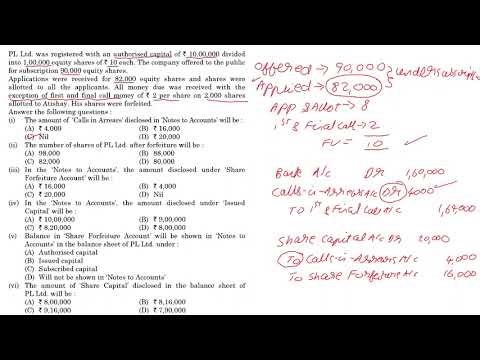 PL Ltd. was registered with an authorised capital of ₹ 10,00,000 divided
into 1,00,000 equity shares of ₹ 10 each. The company offered to the public
for subscription 90,000 equity shares.
Applications were received for 82,000 equity shares and shares were
allotted to all the applicants. All money due was received with the
exception of first and final call money of ₹ 2 per share on 2,000 shares
allotted to Atishay. His shares were forfeited.
Answer the following questions :
(i) The amount of 'Calls in Arrears' disclosed in 'Notes to Accounts' will be :
(A) ₹ 4,000 (B) ₹ 16,000
(C) Nil (D) ₹ 20,000
(ii) The number of shares of PL Ltd. after forfeiture will be :
(A) 98,000 (B) 88,000
(C) 82,000 (D) 80,000
(iii) In the 'Notes to Accounts', the amount disclosed under 'Share
Forfeiture Account' will be :
(A) ₹ 16,000 (B) ₹ 4,000
(C) ₹ 20,000 (D) Nil
(iv) In the 'Notes to Accounts', the amount disclosed under 'Issued
Capital' will be :
(A) ₹ 10,00,000 (B) ₹ 9,00,000
(C) ₹ 8,20,000 (D) ₹ 8,00,000
(v) Balance in 'Share Forfeiture Account' will be shown in 'Notes
to Accounts' in the balance sheet of PL Ltd. under :
(A) Authorised capital
(B) Issued capital
(C) Subscribed capital
(D) Will not be shown in 'Notes to Accounts'
(vi) The amount of 'Share Capital' disclosed in the balance sheet of
PL Ltd. will be :
(A) ₹ 8,00,000 (B) ₹ 8,16,000
(C) ₹ 9,16,000 (D) ₹ 7,90,000
offered → 90,000
Applied → 82,000
App & Allot → 8
1st & Final call → 2
FV = 10
Bank A/c DR 1,60,000
Calls-in-Arrears A/c DR 4000
To 1st & Final Call A/c 1,64,000
Share Capital A/c DR 20,000
To Calls-in-Arrears A/c 4,000
To Share Forfeiture A/c 16,000